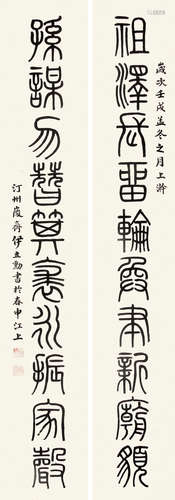 歲次壬戌孟冬之月上澣
祖澤長留輪奐聿新廟貌
孫謀勿替箕裘永振家聲
汀州峻齋伊立勳書於春申江上